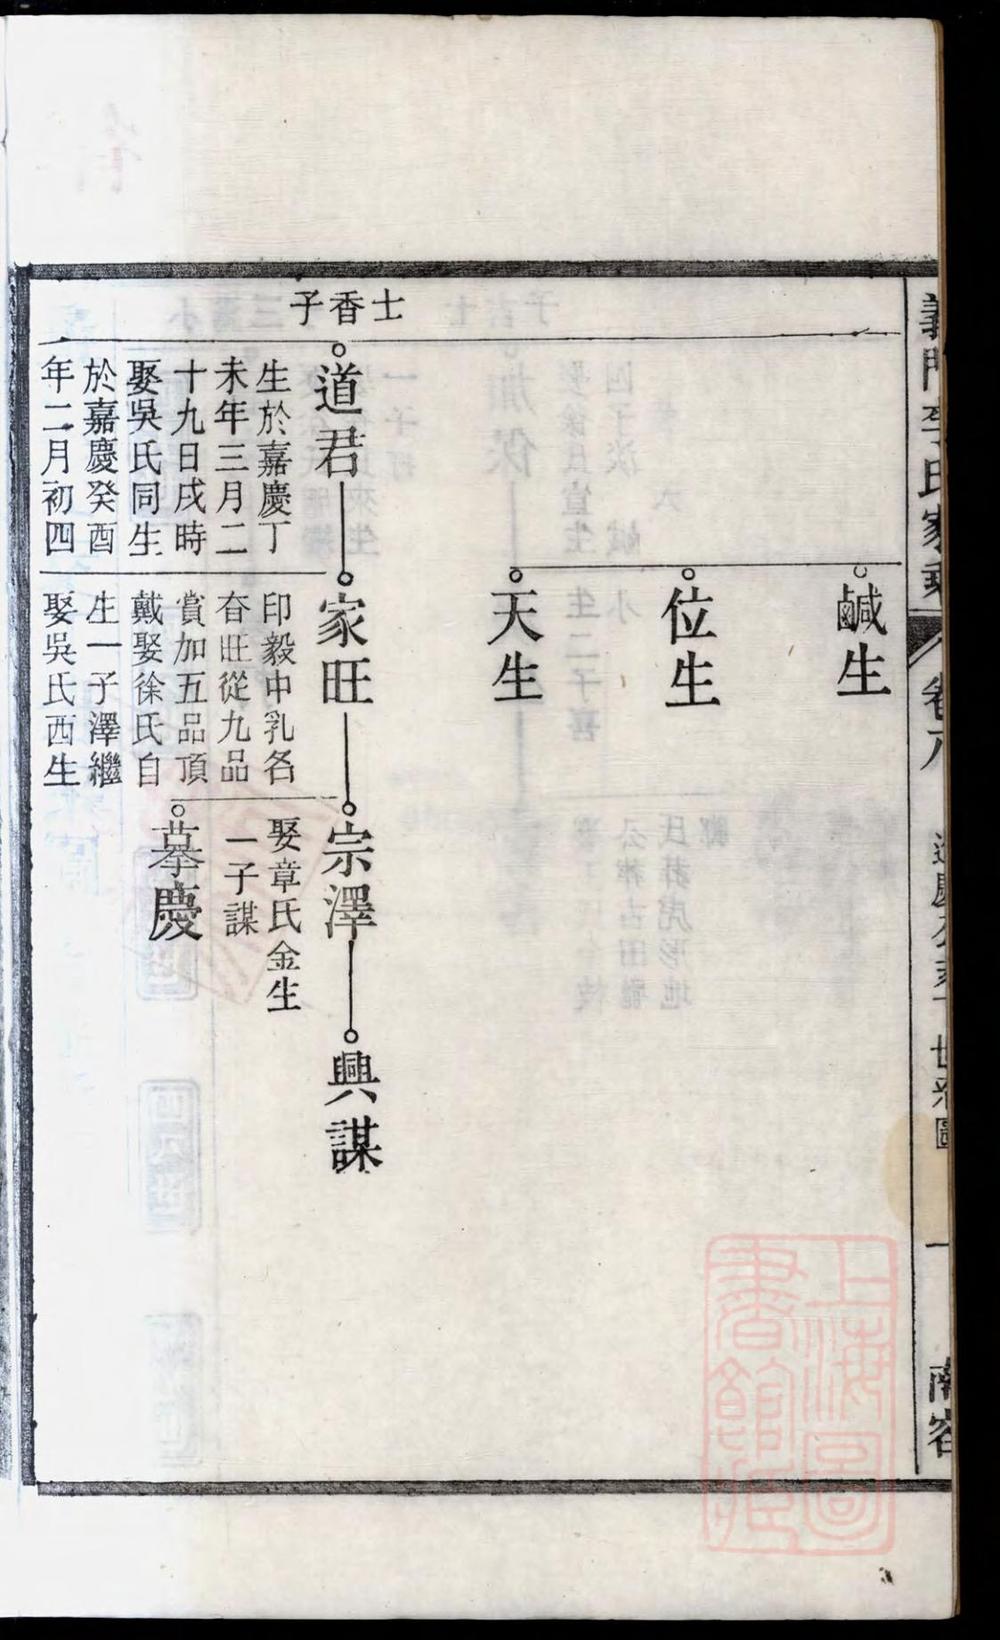 鹹生
位生
天生
士香子
道君
生於嘉慶丁
未年三月二
十九日戌時
娶吳氏同生
於嘉慶癸酉
年二月初四
家旺
印毅中乳名
旺從九品
賞加五品頂
戴娶徐氏自
生一子澤繼
娶吳氏西生
宗澤
娶章氏金生
一子謀
慶
興謀
上海圖
書館藏